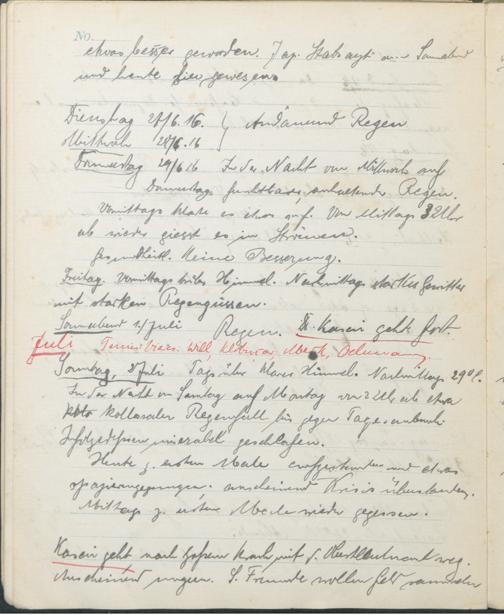 No.
etwas besser geworden. Jap. Stabsarzt am Sonnabend
und heute hier gewesen.
Dienstag 27/6.16. } Andauernd Regen
Mittwoch 28/6.16
Donnerstag 29/6.16 In der Nacht von Mittwoch auf
Donnerstag furchtbarer, anhaltender Regen.
Vormittags klärt es etwas auf. Von Mittags 3 Uhr
ab wieder giesst es in Strömen.
Gesundheitl. keine Besserung.
Freitag. Vormittags trüber Himmel. Nachmittags starkes Gewitter
mit starken Regengüssen.
Sonnabend 1./Juli Regen. Dr. Kasai geht fort.
Juli
Sonntag, 2/Juli Tagsüber klarer Himmel. Nachmittags 29°C.
In der Nacht von Sonntag auf Montag von 2 Uhr ab etwa
kollossaler Regenfall bis gegen Tagesanbruch
Infolgedessen miserabel geschlafen.
Heute z. ersten Male aufgestanden und etwas
spazierengegangen. anscheinend Krisis überstanden.
Mittags z. ersten Male wieder gegessen.
Kasai geht nach grossem Krach mit d. Oberstleutnant weg.
Anscheinend ungern. S. Freunde wollen Geld sammeln